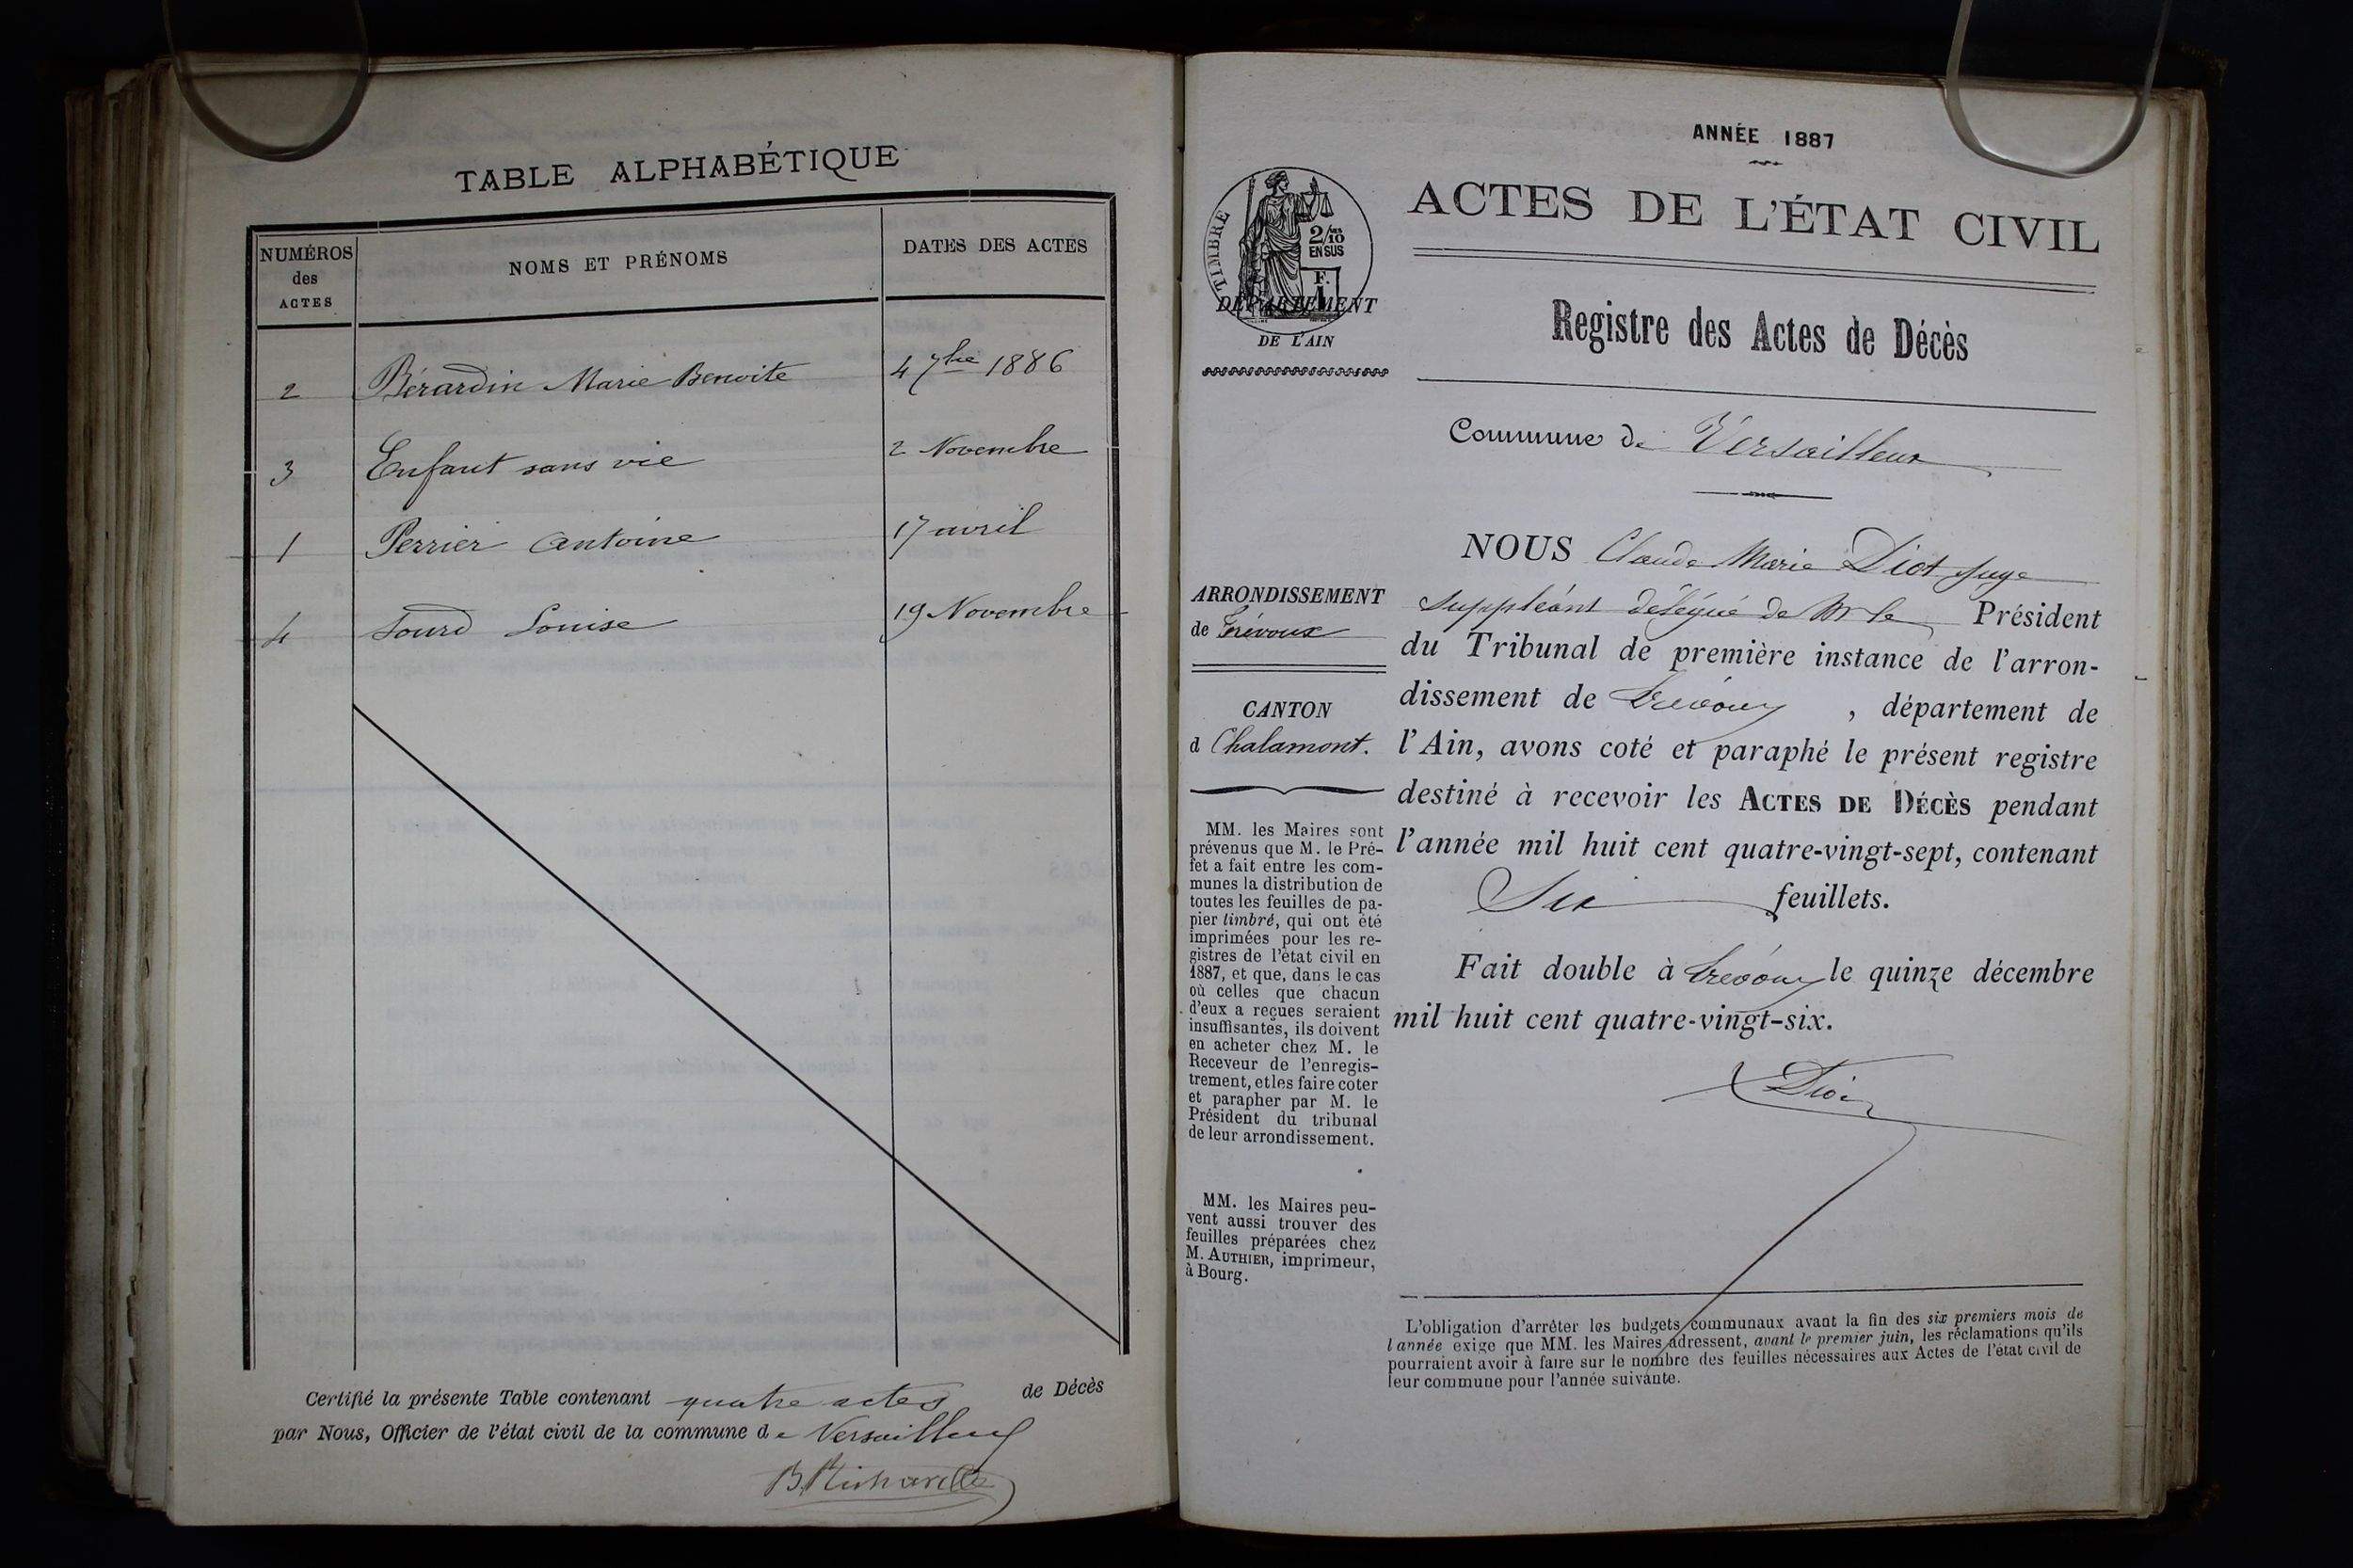 TABLE ALPHABÉTIQUE
NUMÉROS
des
ACTES
NOMS ET PRÉNOMS
DATES DES ACTES
2 Bérardin Marie Benoite 4 7bre 1886
3 Enfant sans vie 2 Novembre
1 Perrier Antoine 17 avril
4 Sourd Louise 19 Novembre
Certifié la présente Table contenant quatre actes de Décès
par Nous, Officier de l'état civil de la commune de Versailleux
ANNÉE 1887
ACTES DE L'ÉTAT CIVIL
TIMBRE
2/10
EN SUS
F.
1
DÉPARTEMENT
DE L'AIN
Registre des Actes de Décès
Commune de Versailleux
ARRONDISSEMENT
de Trévoux
CANTON
d Chalamont.
MM. les Maires sont
prévenus que M. le Pré-
fet a fait entre les com-
munes la distribution de
toutes les feuilles de pa-
pier timbré, qui ont été
imprimées pour les re-
gistres de l'état civil en
1887, et que, dans le cas
où celles que chacun
d'eux a reçues seraient
insuffisantes, ils doivent
en acheter chez M. le
Receveur de l'enregis-
trement, et les faire coter
et parapher par M. le
Président du tribunal
de leur arrondissement.
MM. les Maires peu-
vent aussi trouver des
feuilles préparées chez
M. AUTHIER, imprimeur,
à Bourg.
NOUS Claude Marie Diot Juge
suppléant délégué de Mr le Président
du Tribunal de première instance de l'arron-
dissement de Trévoux, département de
l'Ain, avons coté et paraphé le présent registre
destiné à recevoir les ACTES DE DÉCÈS pendant
l'année mil huit cent quatre-vingt-sept, contenant
Six feuillets.
Fait double à Trévoux le quinze décembre
mil huit cent quatre-vingt-six.
Diot
L'obligation d'arrêter les budgets communaux avant la fin des six premiers mois de
l'année exige que MM. les Maires adressent, avant le premier juin, les réclamations qu'ils
pourraient avoir à faire sur le nombre des feuilles nécessaires aux Actes de l'état civil de
leur commune pour l'année suivante.